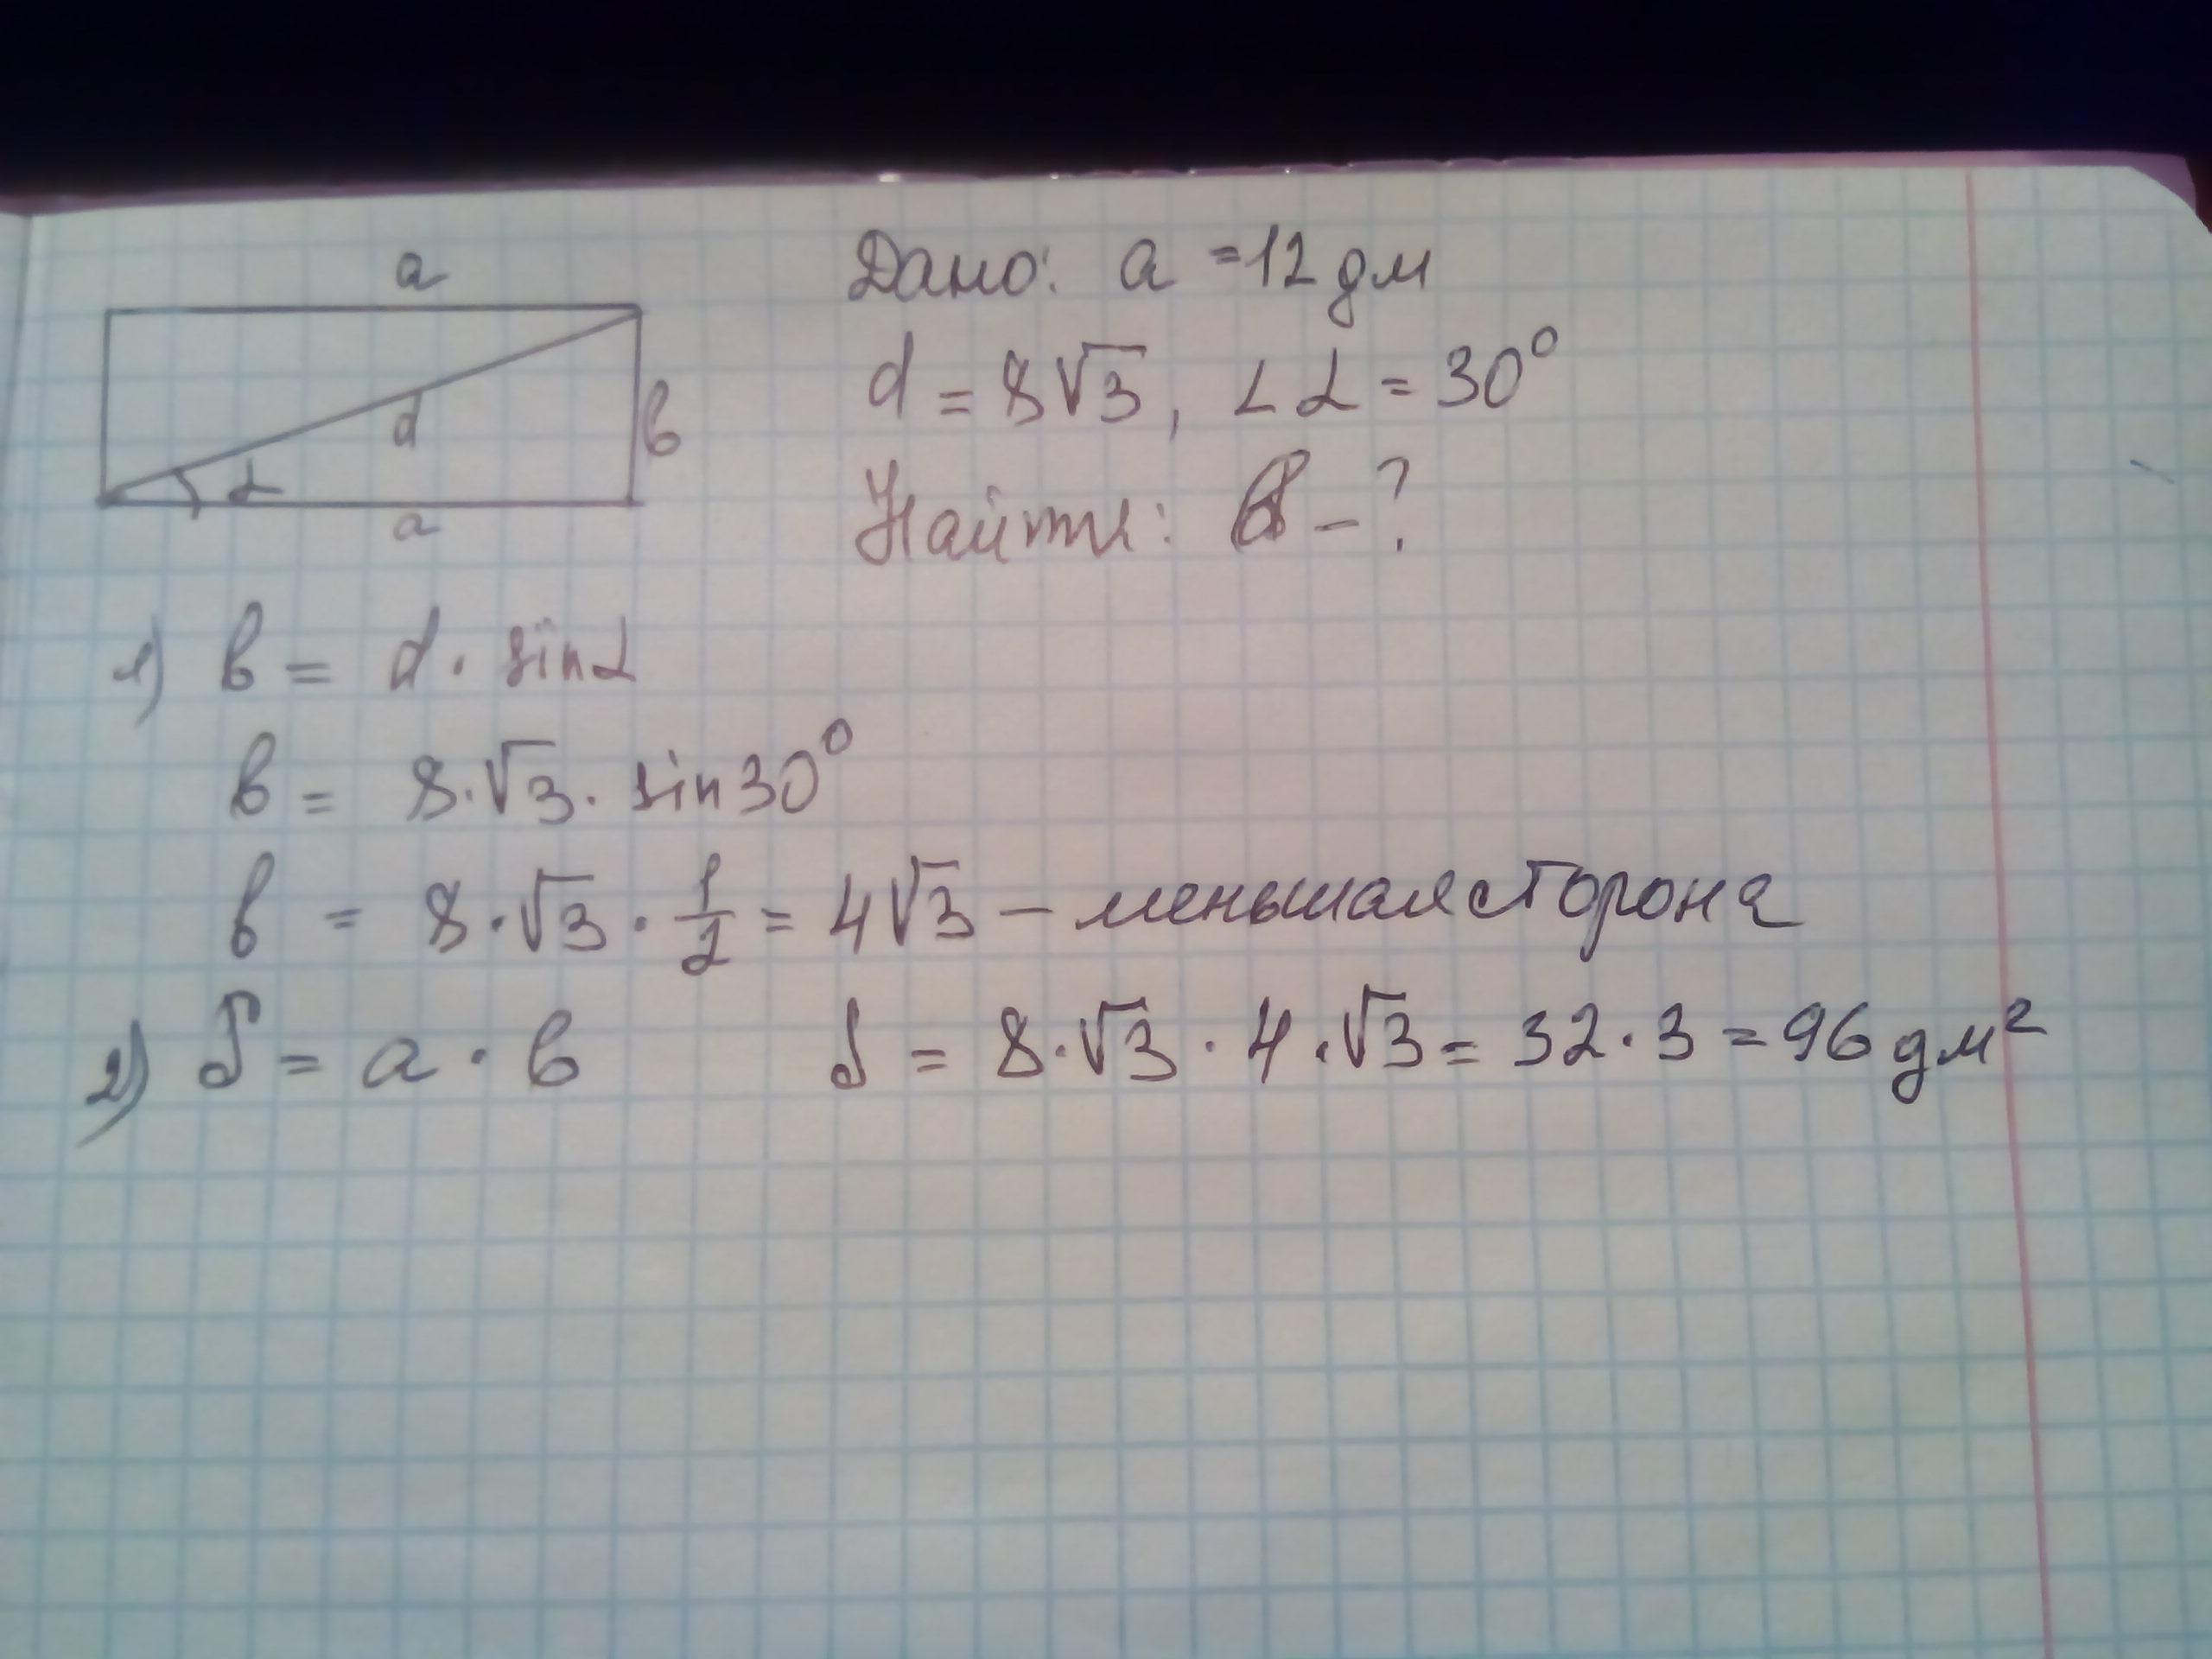 a
Дано: a = 12 дм
d = 8√3, ∠α = 30°
d
в
α
a
Найти: - ?
1) в = d · sinα
в = 8 · √3 · sin30°
в = 8 · √3 · 1/2 = 4√3 – меньшая сторона
2) S = a · в S = 8 · √3 · 4 · √3 = 32 · 3 = 96 дм²